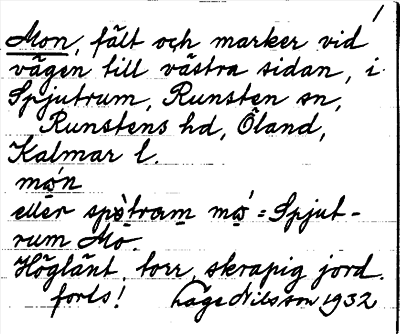 1
Mon, fält och marker vid
vägen till västra sidan, i
Spjutrum, Runsten sn,
Runstens hd, Öland,
Kalmar l.
mǫ́n
eller spè̱tram̱ mǫ́ = Spjut-
rum Mo.
Höglänt, torr, skrapig jord.
forts! Låge Nilsson 1932